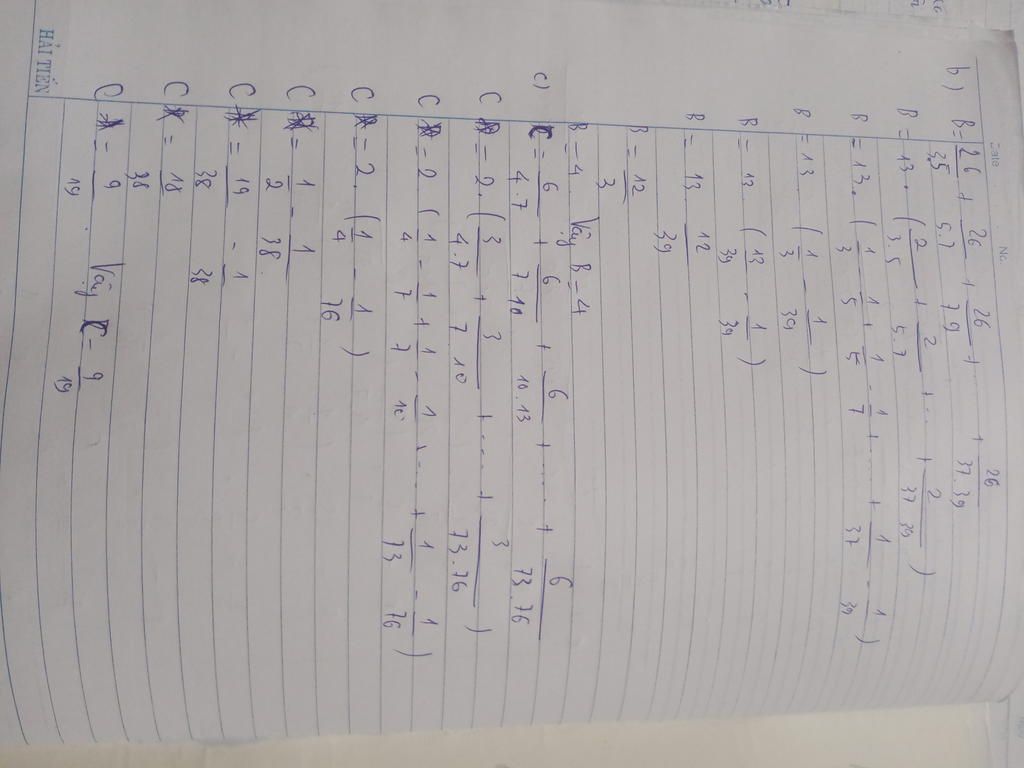 Date No.
b) B = 26/3.5 + 26/5.7 + 26/7.9 + ... + 26/37.39
B = 13. (2/3.5 + 2/5.7 + ... + 2/37.39)
B = 13. (1/3 - 1/5 + 1/5 - 1/7 + ..... + 1/37 - 1/39)
B = 13 (1/3 - 1/39)
B = 13. (13/39 - 1/39)
B = 13. 12/39
B = 12/3
B = 4. Vậy B = 4
c) C = 6/4.7 + 6/7.10 + 6/10.13 + ..... + 6/73.76
C = 2. (3/4.7 + 3/7.10 + .... + 3/73.76)
C = 2 (1/4 - 1/7 + 1/7 - 1/10 + .... + 1/73 - 1/76)
C = 2. (1/4 - 1/76)
C = 1/2 - 1/38.
C = 19/38 - 1/38
C = 18/38
C = 9/19. Vậy C = 9/19
HẢI TIẾN